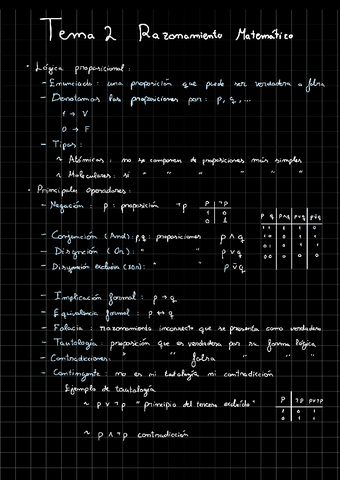 Tema 2 Razonamiento Matemático
• Lógica proposicional:
– Enunciado: una proposición que puede ser verdadera o falsa
– Denotamos las proposiciones por: p, q, ...
1 → V
0 → F
– Tipos:
~ Atómicas: no se componen de proposiciones más simples
~ Moleculares: si " " " " " "
• Principales operadores:
– Negación: p: proposición ¬p
p ¬p
1 0
0 1
– Conjunción (And): p,q: proposiciones p ∧ q
– Disyunción (Or): " " p ∨ q
– Disyunción exclusiva (XOR): " " p ⊻ q
p q p∧q p∨q p⊻q
1 1 1 1 0
1 0 0 1 1
0 1 0 1 1
0 0 0 0 0
– Implicación formal: p → q
– Equivalencia formal: p ↔ q
– Falacia: razonamiento incorrecto que se presenta como verdadero
– Tautología: proposición que es verdadera por su forma lógica
– Contradicciones: " " falsa " " "
– Contingente: no es ni tautología ni contradicción
Ejemplo de tautología
~ p ∨ ¬p "principio del tercero excluido"
p ¬p p∨¬p
1 0 1
0 1 1
~ p ∧ ¬p contradicción